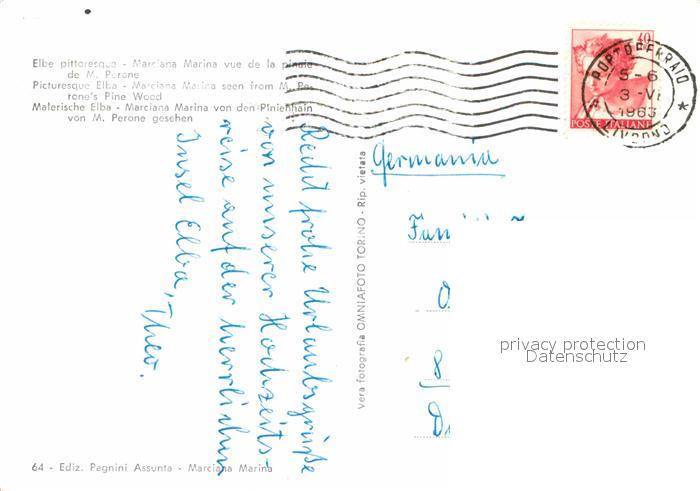 Elbe pittoresque - Marciana Marina vue de la pinaie
de M. Perone
Picturesque Elba - Marciana Marina seen from M. Pe-
rone's Pine Wood
Malerische Elba - Marciana Marina von den Pinienhain
von M. Perone gesehen
Recht frohe Urlaubsgrüße
von unserer Hochzeits-
reise auf der herrlichen
Insel Elba,
Theo.
64 - Ediz. Pagnini Assunta - Marciana Marina
Vera fotografia OMNIAFOTO TORINO - Rip. vietata
40
POSTE ITALIANE
PORTOFERRAIO
3 - VI
1963
LIVORNO
Germania
privacy protection
Datenschutz